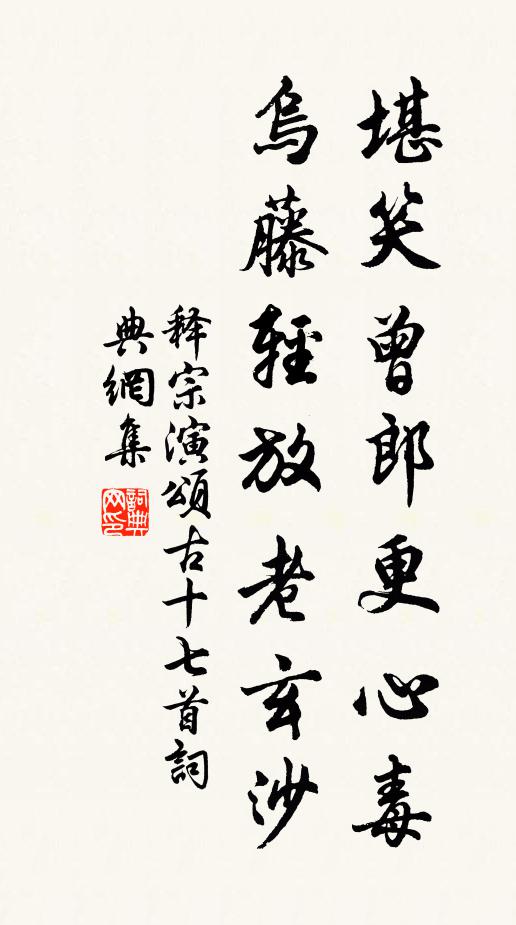 堪笑曾郎更心毒
烏藤輕放老玄沙
释宗演頌古十七首詞
典網集
詞典網印